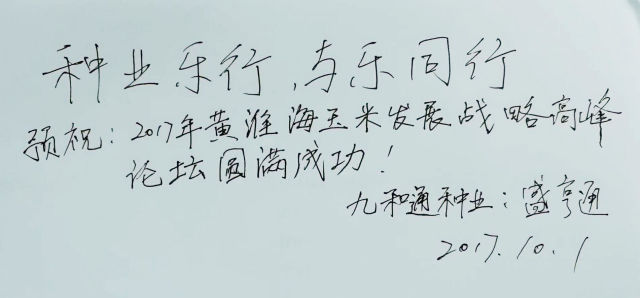 种业乐行,与乐同行
预祝:2017年黄淮海玉米发展战略高峰
论坛圆满成功!
九和通种业:盛亨通
2017.10.1